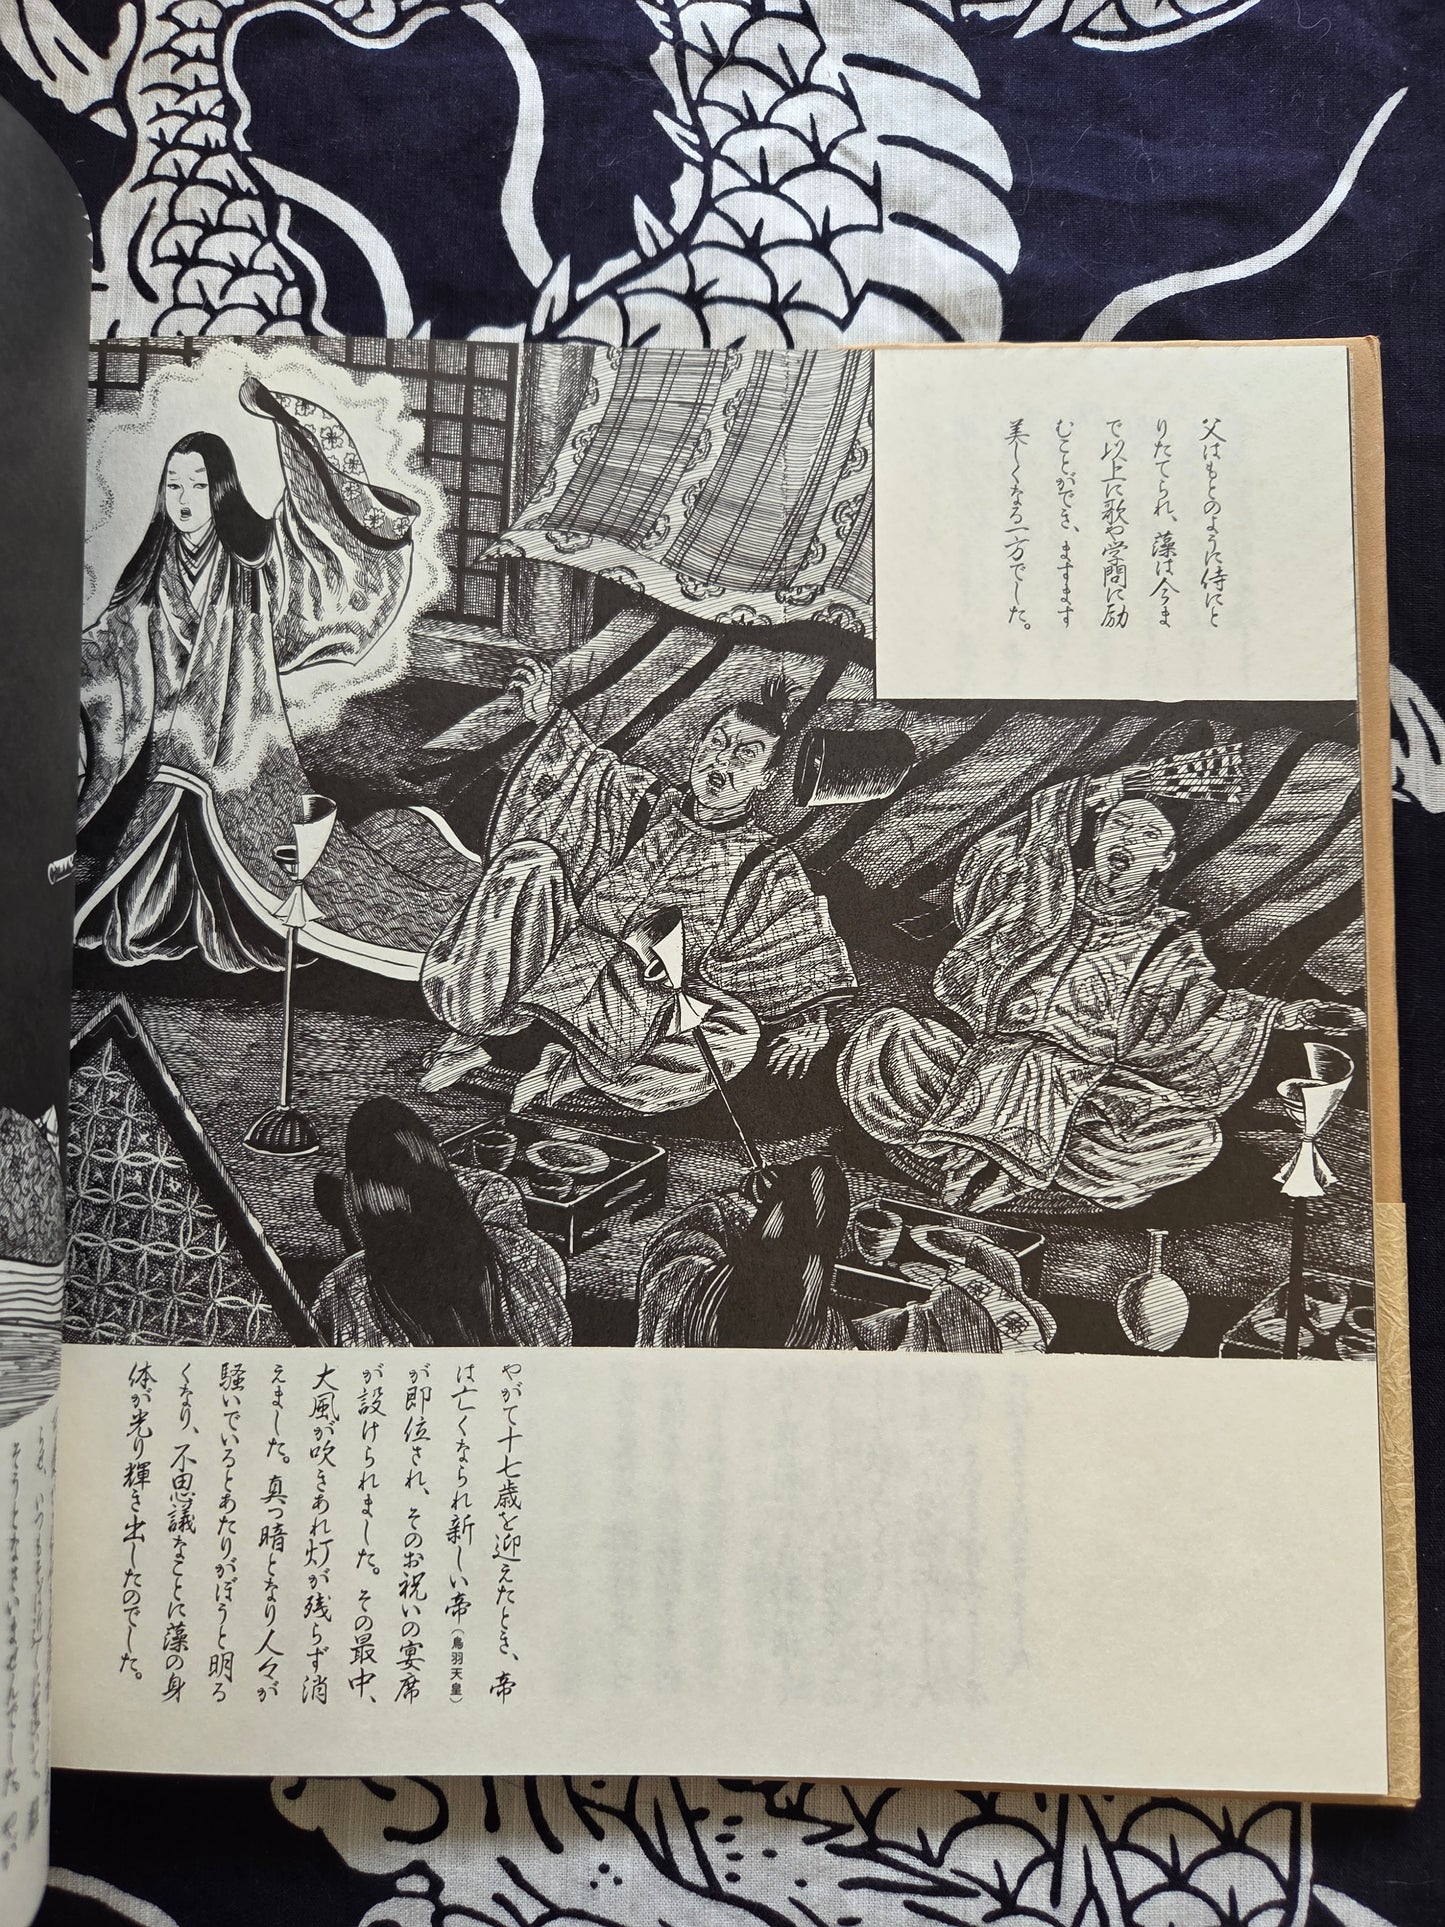 父はもとのように侍にと
りたてられ、藻は今ま
で以上に歌や学問に励
むことができ、ますます
美しくなる一方でした。
やがて十七歳を迎えたとき、帝
は亡くなられ新しい帝（鳥羽天皇）
が即位され、そのお祝いの宴席
が設けられました。その最中、
大風が吹きあれ灯が残らず消
えました。真っ暗となり人々が
騒いでいるとあたりがぼうと明る
くなり、不思議なことに藻の身
体が光り輝き出したのでした。